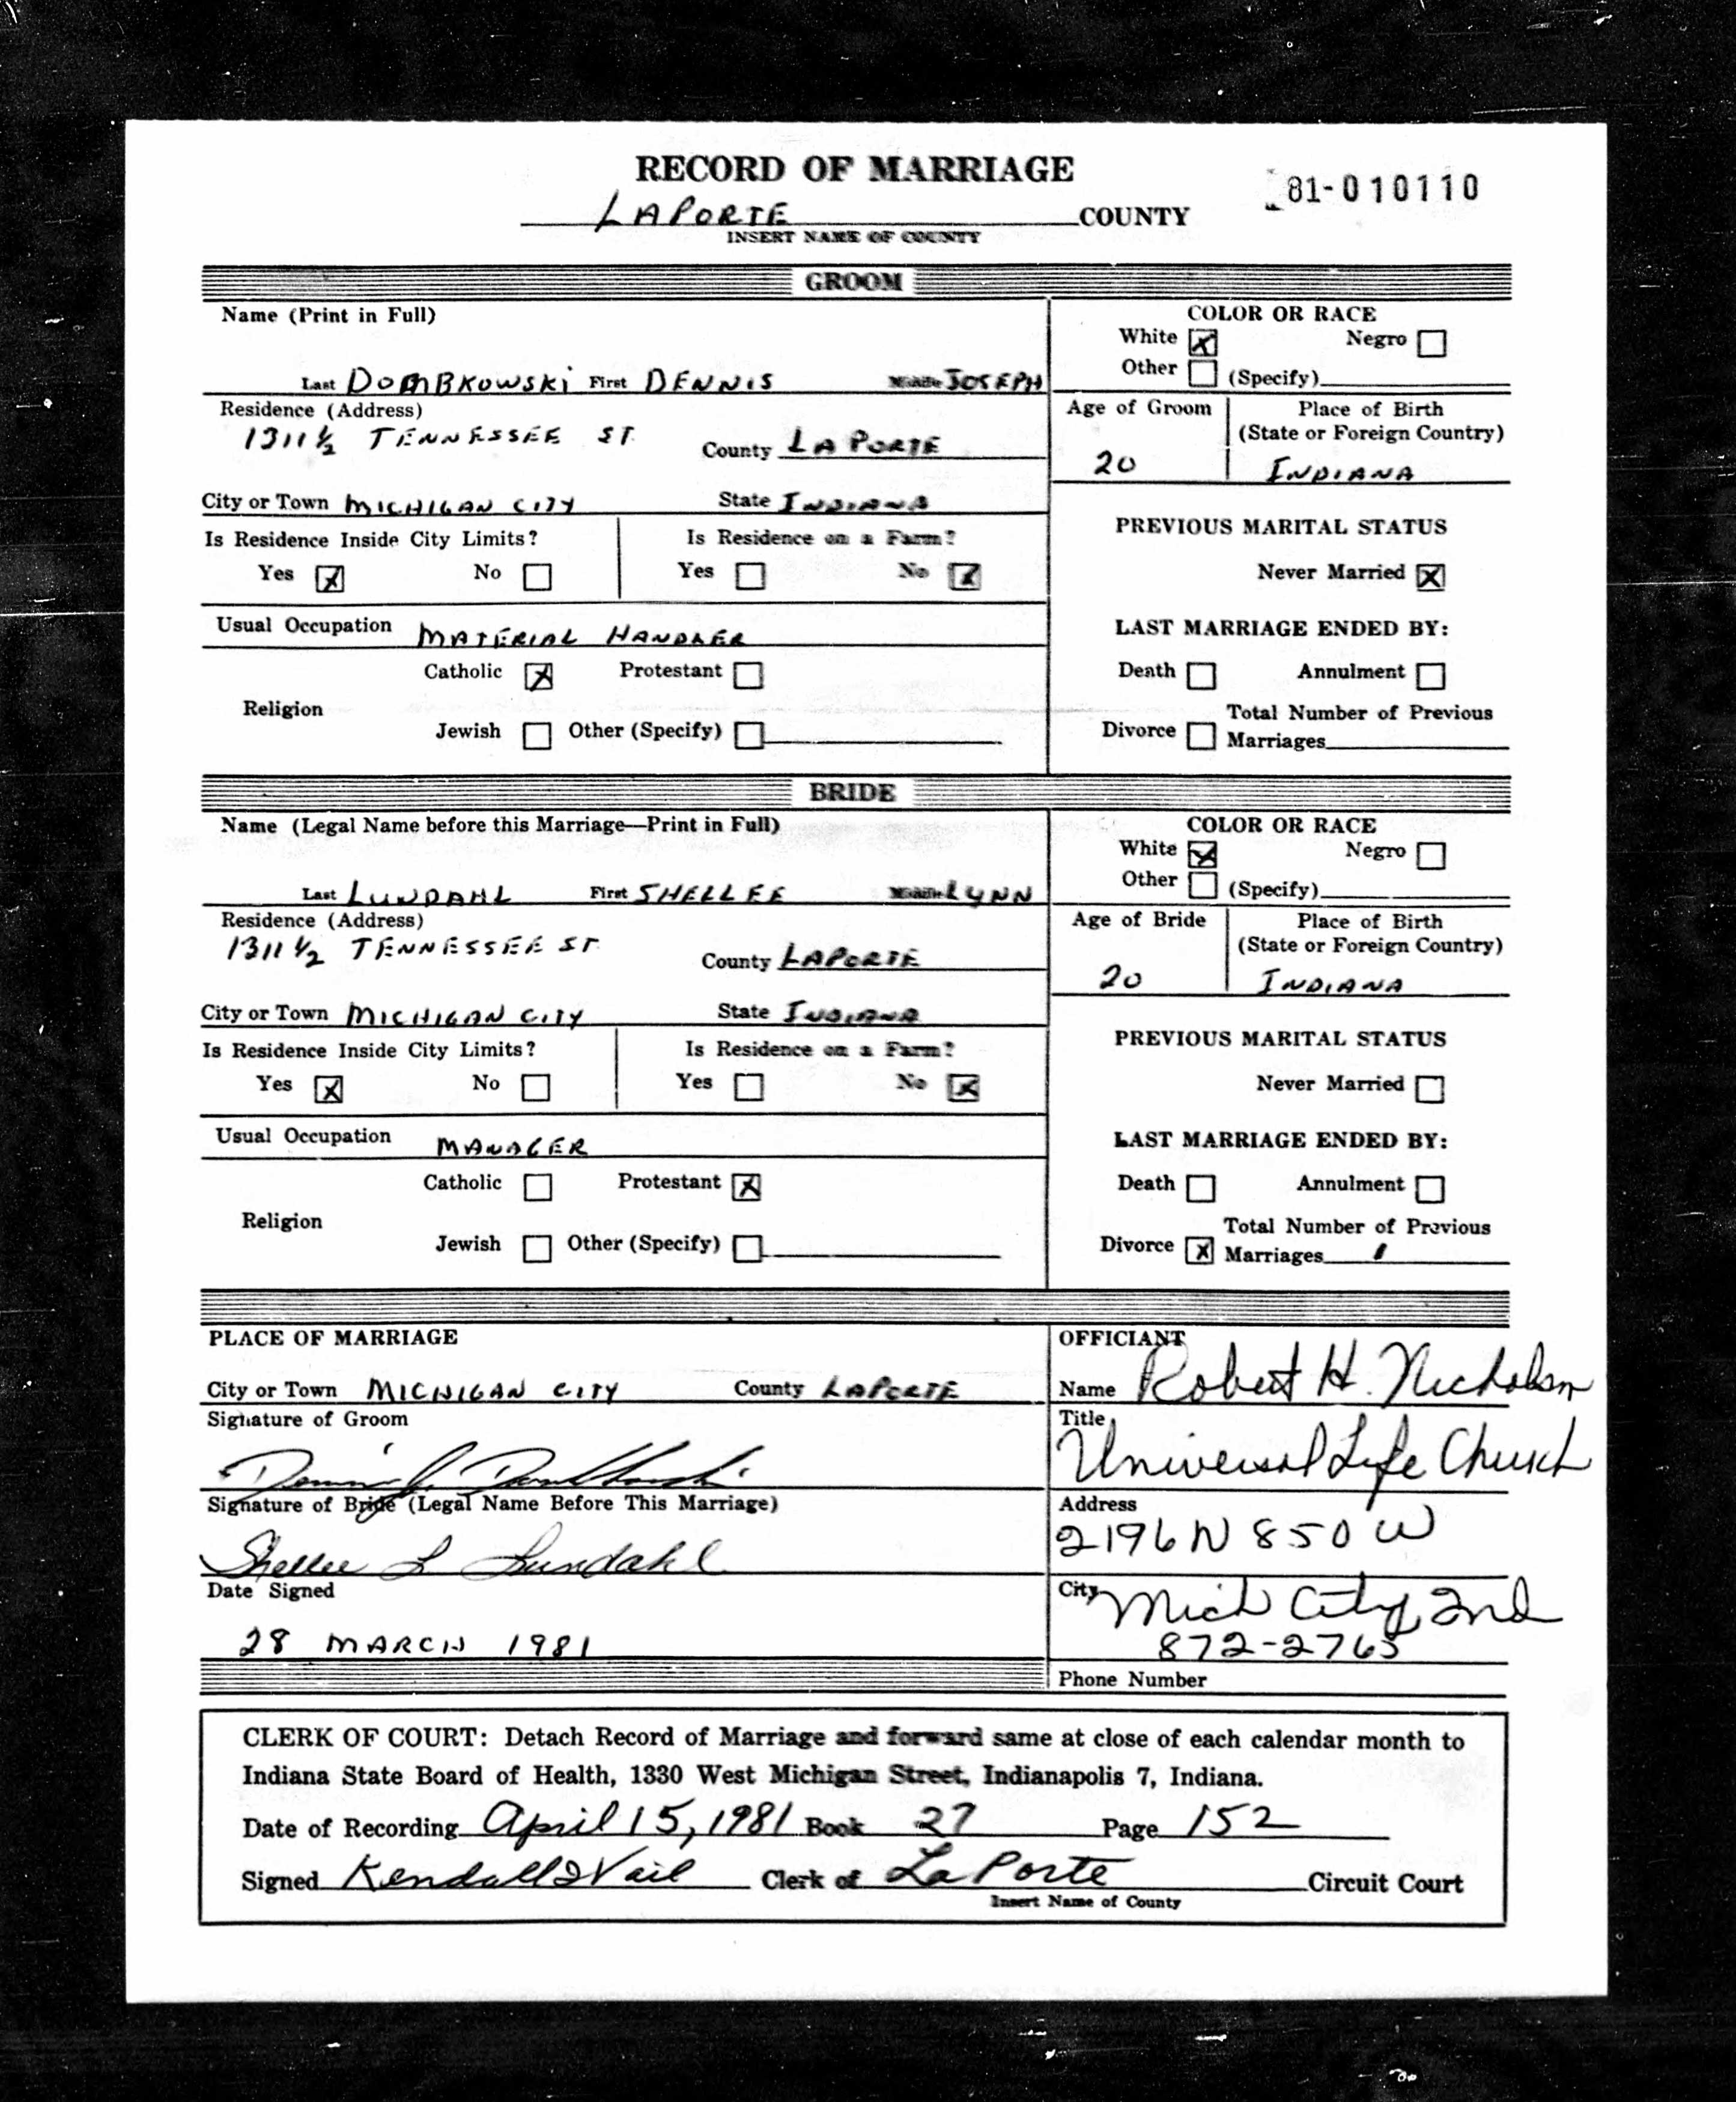 RECORD OF MARRIAGE
81-010110
LAPORTE COUNTY
INSERT NAME OF COUNTY
GROOM
Name (Print in Full)
Last DOMBKOWSKI First DENNIS Middle JOSEPH
COLOR OR RACE
White X Negro
Other (Specify)
Residence (Address)
1311 1/2 TENNESSEE ST. County LA PORTE
Age of Groom
20
Place of Birth
(State or Foreign Country)
INDIANA
City or Town MICHIGAN CITY State INDIANA
Is Residence Inside City Limits?
Yes X No
Is Residence on a Farm?
Yes No X
PREVIOUS MARITAL STATUS
Never Married X
Usual Occupation MATERIAL HANDLER
LAST MARRIAGE ENDED BY:
Death Annulment
Divorce Total Number of Previous
Marriages
Religion
Catholic X Protestant
Jewish Other (Specify)
BRIDE
Name (Legal Name before this Marriage—Print in Full)
Last LUNDAHL First SHELLEE Middle LYNN
COLOR OR RACE
White X Negro
Other (Specify)
Residence (Address)
1311 1/2 TENNESSEE ST County LAPORTE
Age of Bride
20
Place of Birth
(State or Foreign Country)
INDIANA
City or Town MICHIGAN CITY State INDIANA
Is Residence Inside City Limits?
Yes X No
Is Residence on a Farm?
Yes No X
PREVIOUS MARITAL STATUS
Never Married
Usual Occupation MANAGER
LAST MARRIAGE ENDED BY:
Death Annulment
Divorce X Total Number of Previous
Marriages 1
Religion
Catholic Protestant X
Jewish Other (Specify)
PLACE OF MARRIAGE
City or Town MICHIGAN CITY County LAPORTE
Signature of Groom
Dennis J. Dombkowski
Signature of Bride (Legal Name Before This Marriage)
Shellee L Lundahl
Date Signed
28 MARCH 1981
OFFICIANT
Name Robert H. Nicholson
Title
Universal Life Church
Address
2196 N 850 W
City Mich City, Ind
872-2765
Phone Number
CLERK OF COURT: Detach Record of Marriage and forward same at close of each calendar month to
Indiana State Board of Health, 1330 West Michigan Street, Indianapolis 7, Indiana.
Date of Recording April 15, 1981 Book 27 Page 152
Signed Kendall Vail Clerk of La Porte Circuit Court
Insert Name of County